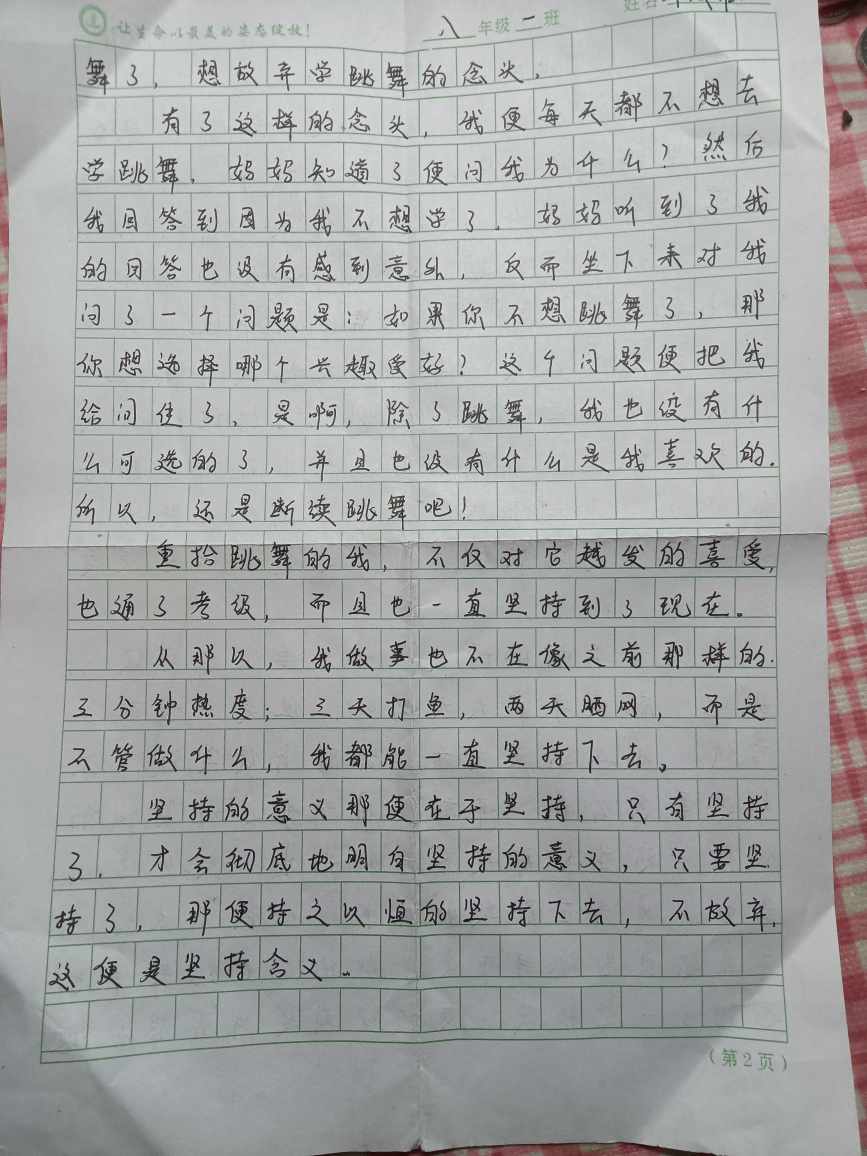 让生命以最美的姿态绽放！ 八年级二班 姓名
舞了，想放弃学跳舞的念头，
有了这样的念头，我便每天都不想去
学跳舞，妈妈知道了便问我为什么？然后
我回答到因为我不想学了，妈妈听到了我
的回答也没有感到意外，反而坐下来对我
问了一个问题是：如果你不想跳舞了，那
你想选择哪个兴趣爱好？这个问题便把我
给问住了，是啊，除了跳舞，我也没有什
么可选的了，并且也没有什么是我喜欢的.
所以，还是断续跳舞吧！
重拾跳舞的我，不仅对它越发的喜爱，
也通了考级，而且也一直坚持到了现在。
从那以，我做事也不在像之前那样的.
三分钟热度；三天打鱼，两天晒网，而是
不管做什么，我都能一直坚持下去。
坚持的意义那便在于坚持，只有坚持
了，才会彻底地明白坚持的意义，只要坚
持了，那便持之以恒的坚持下去，不放弃，
这便是坚持含义。
（第2页）